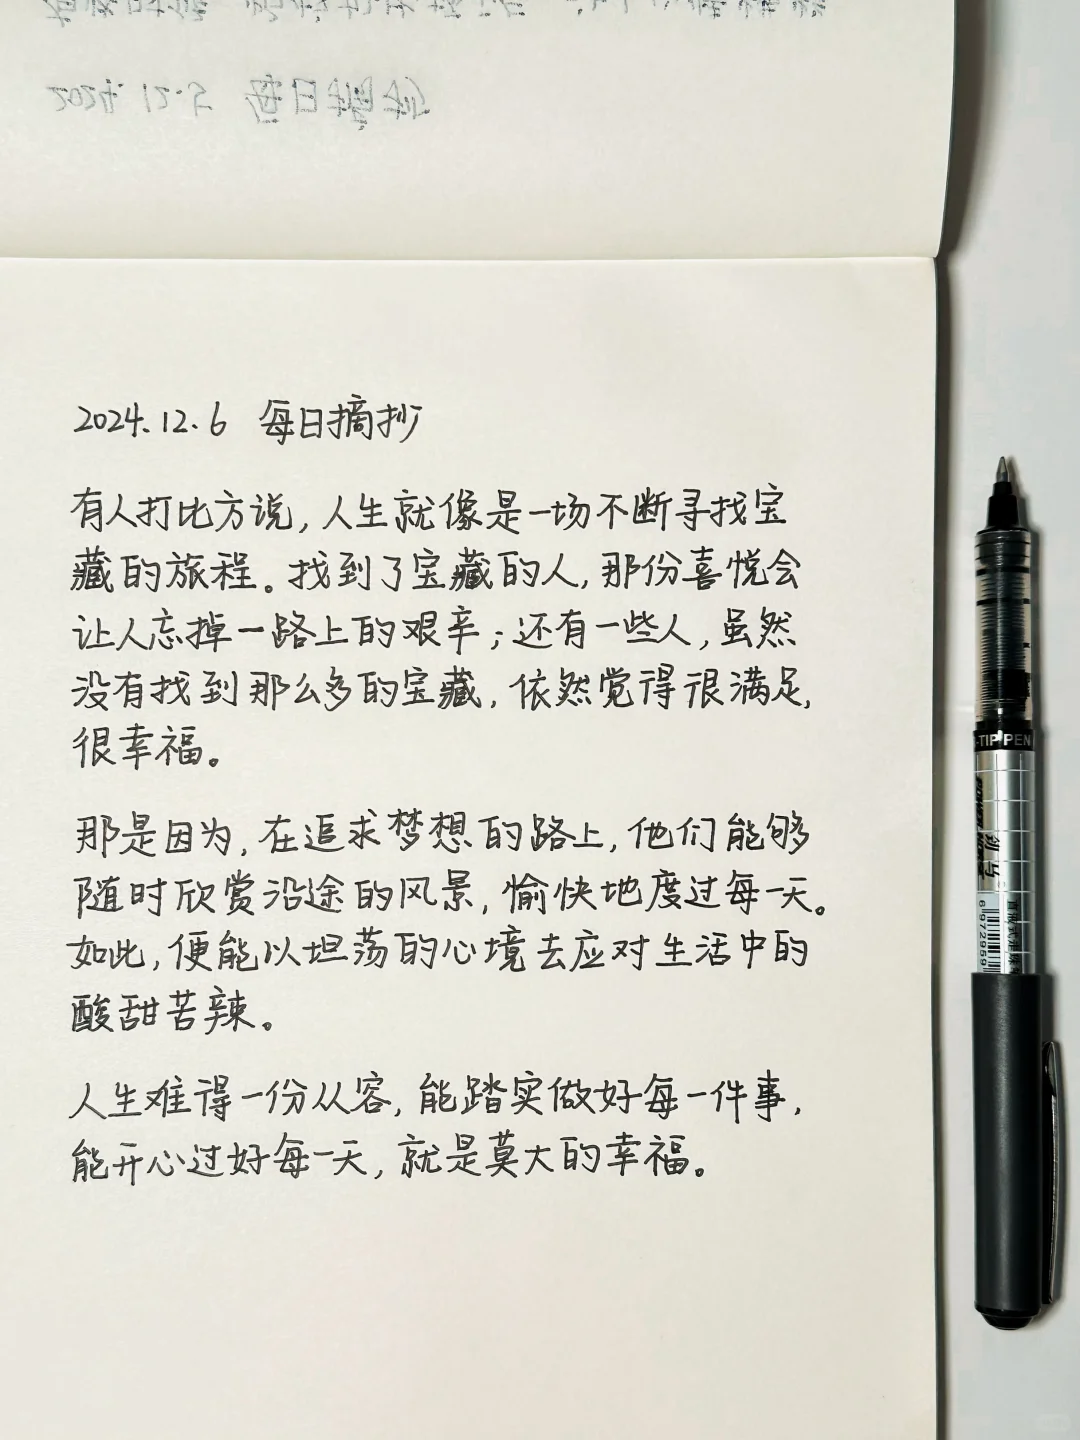 2024.12.5 每日摘抄
2024.12.6 每日摘抄
有人打比方说,人生就像是一场不断寻找宝
藏的旅程。找到了宝藏的人,那份喜悦会
让人忘掉一路上的艰辛;还有一些人,虽然
没有找到那么多的宝藏,依然觉得很满足,
很幸福。
那是因为,在追求梦想的路上,他们能够
随时欣赏沿途的风景,愉快地度过每一天。
如此,便能以坦荡的心境去应对生活中的
酸甜苦辣。
人生难得一份从容,能踏实做好每一件事,
能开心过好每一天,就是莫大的幸福。
-TIP PEN
直液式走珠
6972959